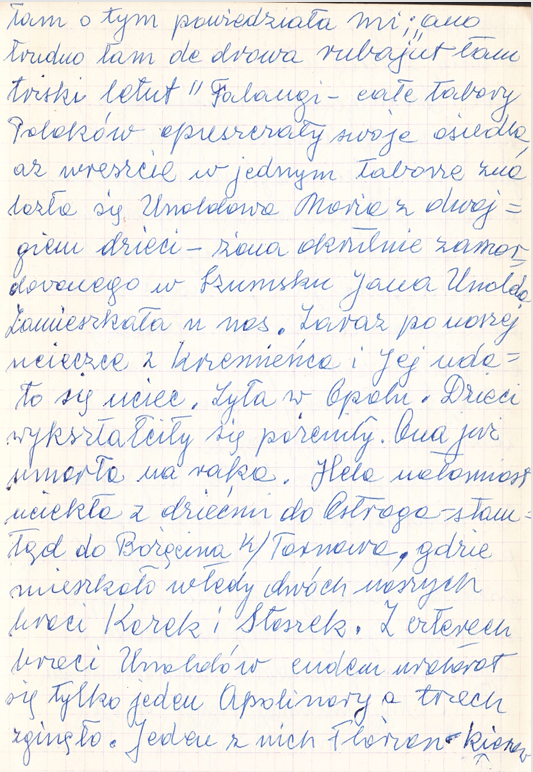 tam o tym powiedziała mi; "ano
trudno tam de drowa rubajut tam
triski letut" Falangi - całe tabory
Polaków opuszczały swoje osiedla,
aż wreszcie w jednym taborze zna
lazła się Unoldowa Maria z dwoj=
giem dzieci - żona okrutnie zamor
dowanego w Szumsku Jana Unolda
Zamieszkała u nas. Zaraz po naszej
ucieczce z Krzemieńca i Jej uda=
ło się uciec. Żyła w Opolu. Dzieci
wykształciły się pożeniły. Ona już
umarła na raka. Hela natomiast
uciekła z dziećmi do Ostroga - stam=
tąd do Borzęcina k/Tarnowa, gdzie
mieszkało wtedy dwóch naszych
braci Karek i Staszek. Z czterech
braci Unoldów cudem uratował
się tylko jeden Apolinary a trzech
zginęło. Jeden z nich Florian